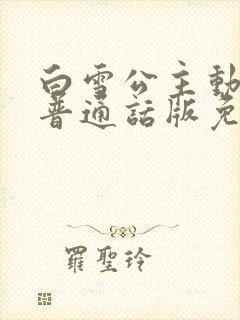 白雪公主動
普通話版免
羅聖玲